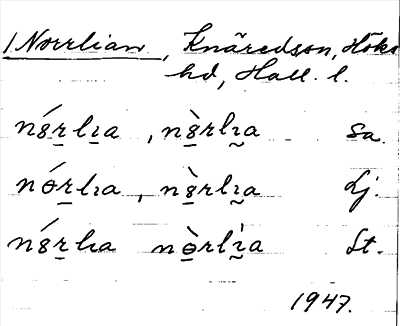 /Norrlian, Knäredson, Höks
hd, Hall. l.
nɞ́r̠lıa, nɞ̠̀rlı̰a sa.
nór̠lıa, nɞ̠̀rlı̰a Lj.
nɞ́r̠lıa nò̠rlı̰̀a St.
1947.